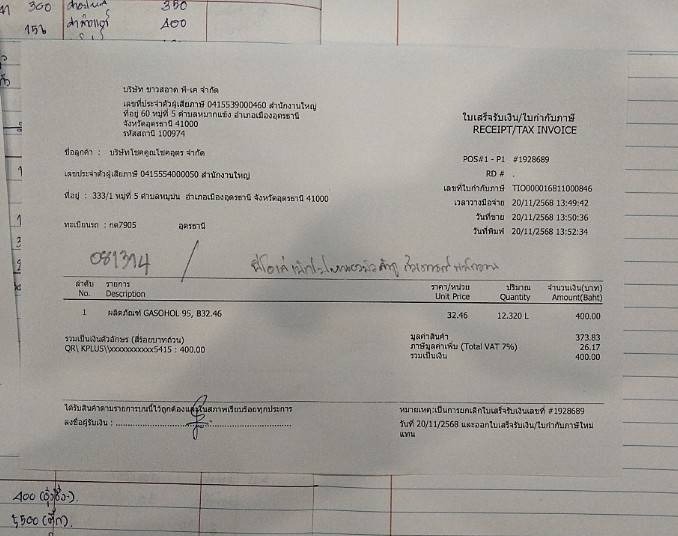 300
350
156
400
บริษัท ขาวสอาด พี-เค จำกัด
เลขที่ประจำตัวผู้เสียภาษี 0415539000460 สำนักงานใหญ่
ที่อยู่ 60 หมู่ที่ 5 ตำบลหมากแข้ง อำเภอเมืองอุดรธานี
จังหวัดอุดรธานี 41000
รหัสสถานี 100974
ใบเสร็จรับเงิน/ใบกำกับภาษี
RECEIPT/TAX INVOICE
ชื่อลูกค้า : บริษัทโชคคูณโชคอุดร จำกัด
POS#1 - P1 #1928689
เลขประจำตัวผู้เสียภาษี 0415554000050 สำนักงานใหญ่
RD # .
เลขที่ใบกำกับภาษี TIO000016811000846
ที่อยู่ : 333/1 หมู่ที่ 5 ตำบลหมูม่น อำเภอเมืองอุดรธานี จังหวัดอุดรธานี 41000
เวลาวางมือจ่าย 20/11/2568 13:49:42
วันที่ขาย 20/11/2568 13:50:36
ทะเบียนรถ : กด7905 อุดรธานี
วันที่พิมพ์ 20/11/2568 13:52:34
081314
ลำดับ รายการ ราคา/หน่วย ปริมาณ จำนวนเงิน(บาท)
No. Description Unit Price Quantity Amount(Baht)
1 ผลิตภัณฑ์ GASOHOL 95, B32.46 32.46 12.320 L 400.00
รวมเป็นเงินตัวอักษร (สี่ร้อยบาทถ้วน) มูลค่าสินค้า 373.83
QR\ KPLUS\\xxxxxxxxxxx5415 : 400.00 ภาษีมูลค่าเพิ่ม (Total VAT 7%) 26.17
รวมเป็นเงิน 400.00
ได้รับสินค้าตามรายการบนนี้ไว้ถูกต้องและในสภาพเรียบร้อยทุกประการ
หมายเหตุ:เป็นการยกเลิกใบเสร็จรับเงินเลขที่ #1928689
ลงชื่อผู้รับเงิน :
วันที่ 20/11/2568 และออกใบเสร็จรับเงิน/ใบกำกับภาษีใหม่
แทน
400
5,500